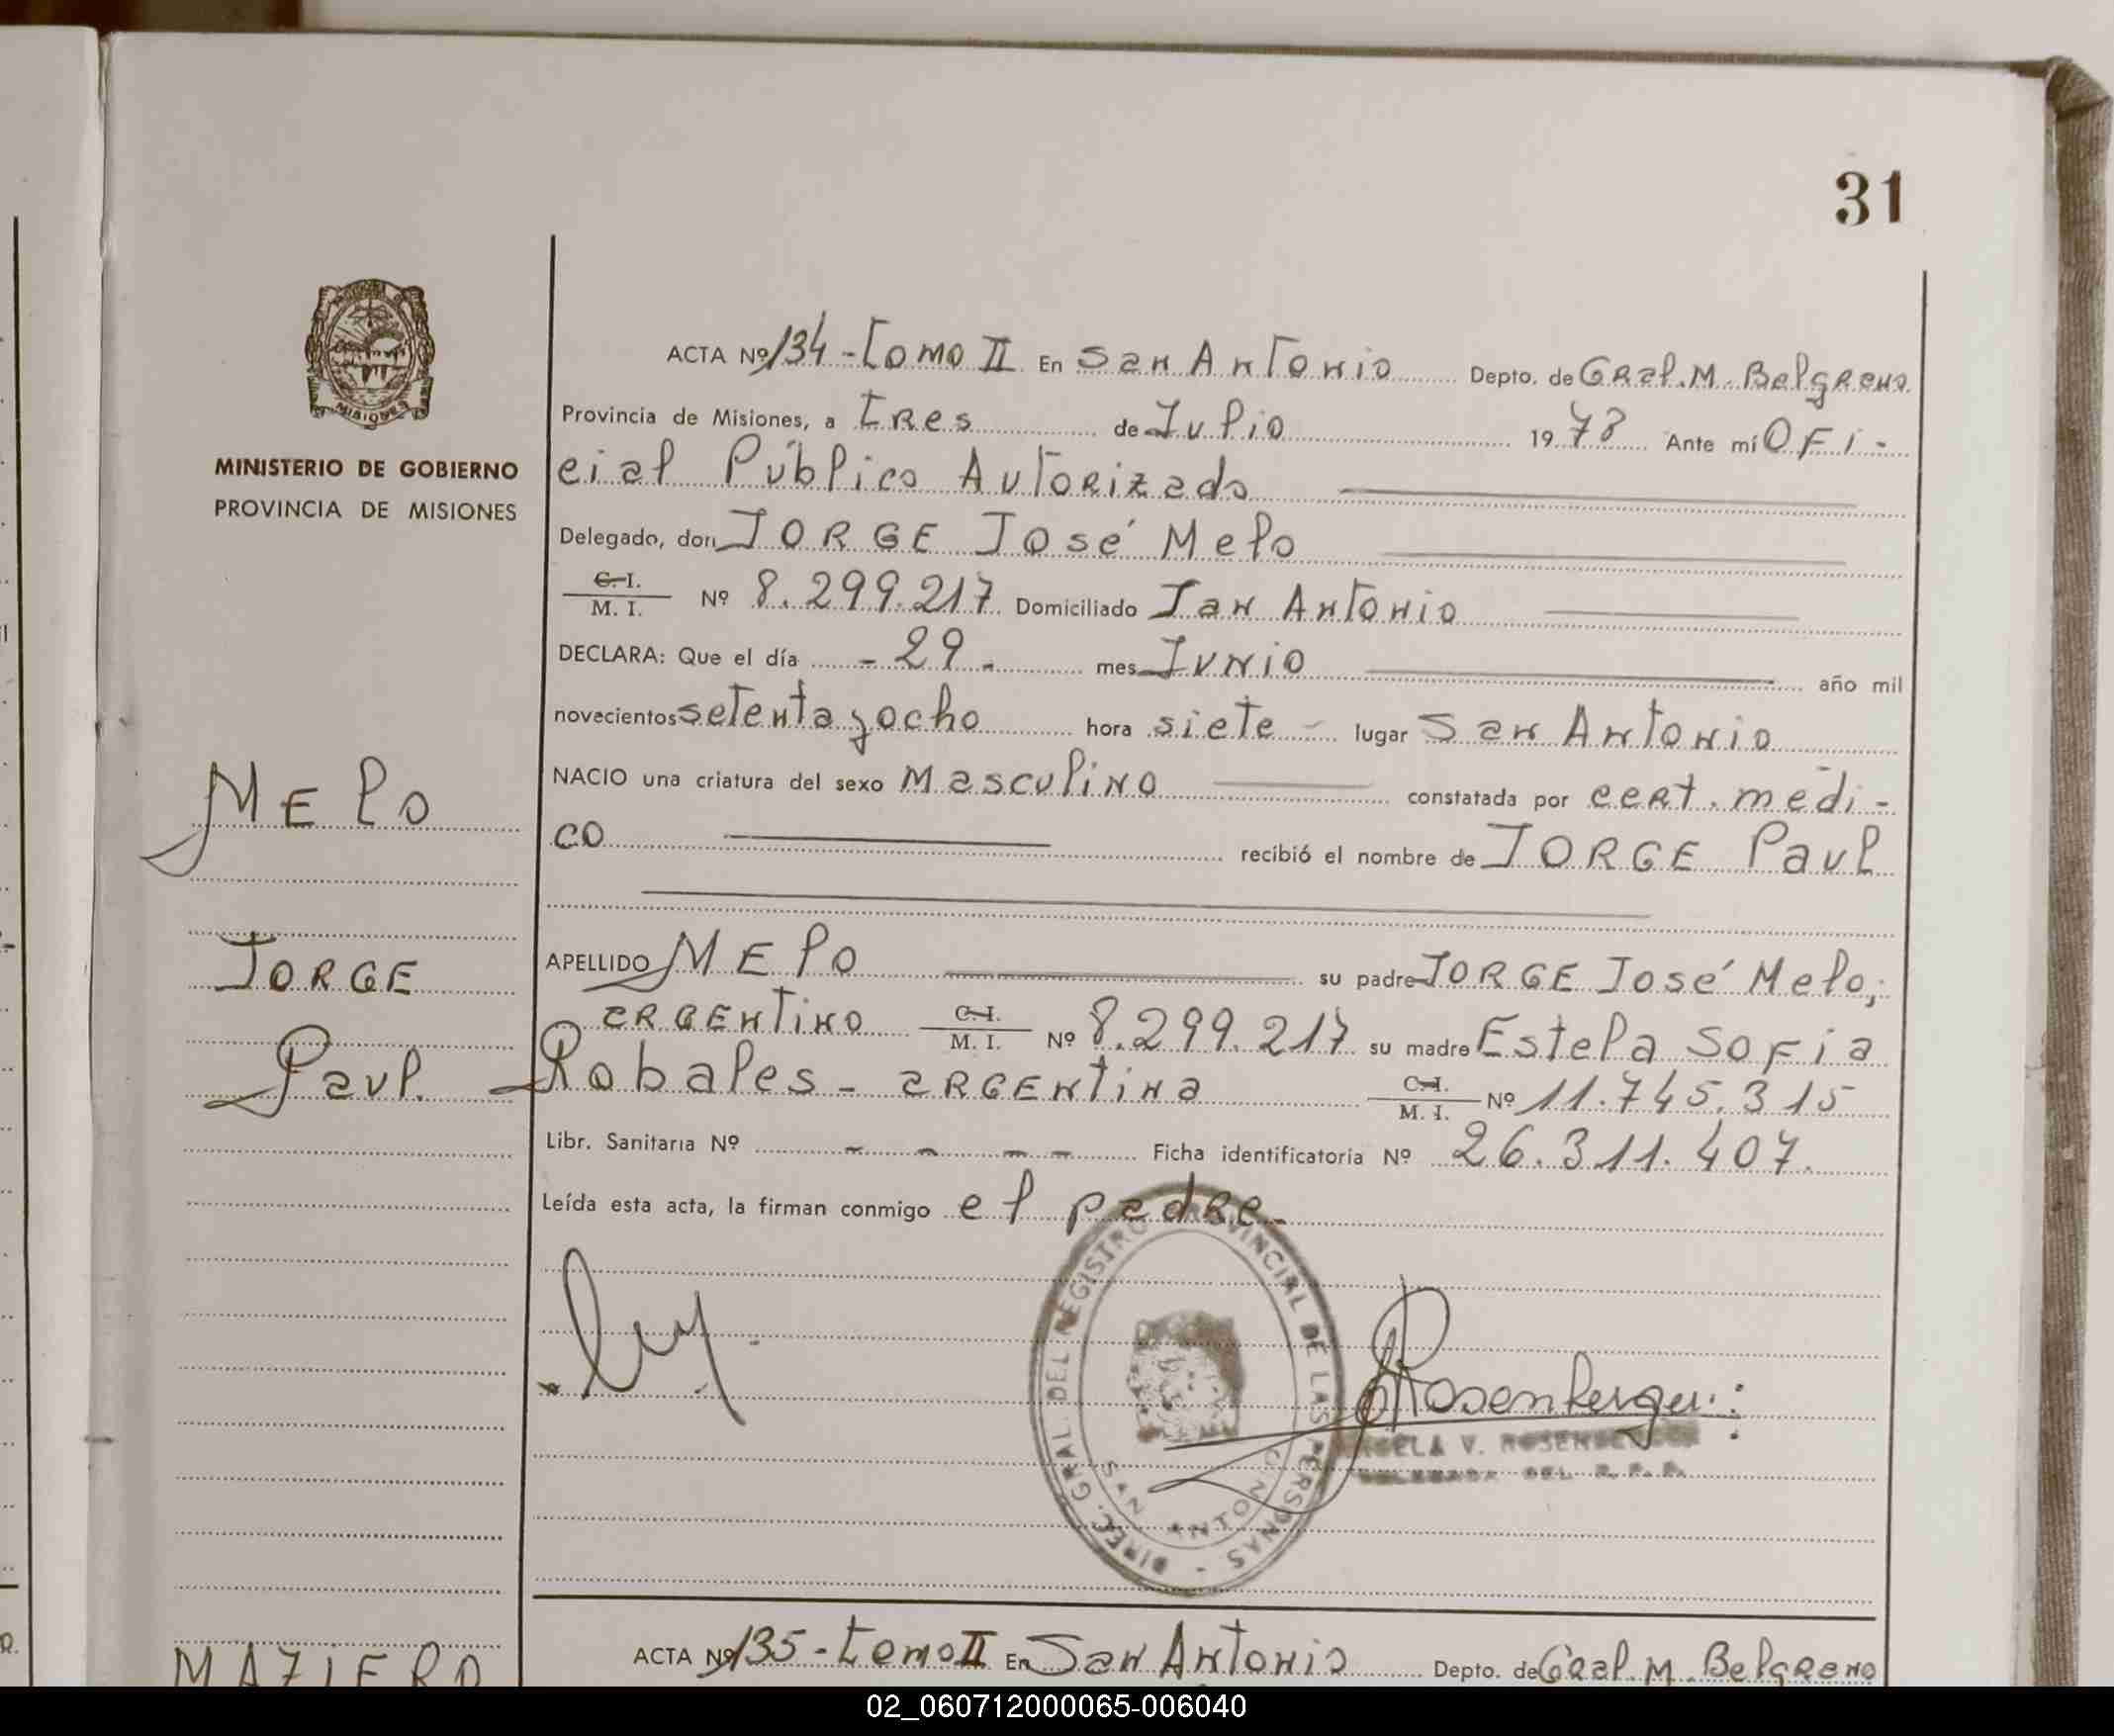 31
ACTA Nº 134 - Tomo II En San Antonio Depto. de Gral. M. Belgrano
Provincia de Misiones, a tres de Julio 1978 Ante mí Ofi-
MINISTERIO DE GOBIERNO
PROVINCIA DE MISIONES
cial Público Autorizado
Delegado, don JORGE José Melo
C. I.
M. I. Nº 8.299.217 Domiciliado San Antonio
DECLARA: Que el día - 29 - mes Junio año mil
novecientos setenta y ocho hora siete - lugar San Antonio
NACIO una criatura del sexo Masculino constatada por cert. medi-
co recibió el nombre de JORGE Paul
MElo
JORGE
Paul.
APELLIDO MElo su padre JORGE José Melo,
argentino C. I.
M. I. Nº 8.299.217 su madre Estela Sofia
Robales - argentina C. I.
M. I. Nº 11.745.315
Libr. Sanitaria Nº - - - - Ficha identificatoria Nº 26.311.407.
Leída esta acta, la firman conmigo el padre.
DIREC. GRAL. DEL REGISTRO PROVINCIAL DE LAS PERSONAS -
SAN ANTONIO
Rosenberger
ANGELA V. ROSENBERGER
DELEGADA DEL R. P. P.
ACTA Nº 135 - Tomo II En San Antonio Depto. de Gral. M. Belgrano
MAZIERO
02_060712000065-006040